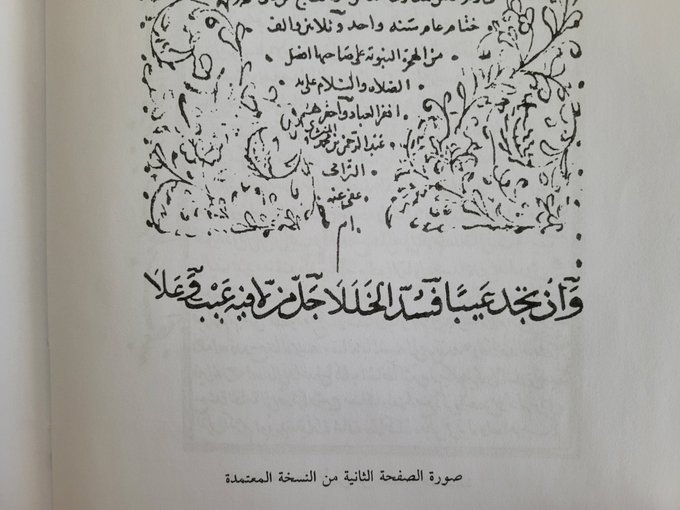 ختام عام سنه واحد وثلاثين والف
من الهجرة النبوية على صاحبها افضل
الصلاه والسلام على يد
افقر العباد واحقرهم
عبد الرحمن بن محمد
عفى عنه
ام
وَاِنْ تجد عَيبًا فَسُدّ الخَلَلَا جَلّ من لا فيه عَيْب وَعَلَا
صورة الصفحة الثانية من النسخة المعتمدة